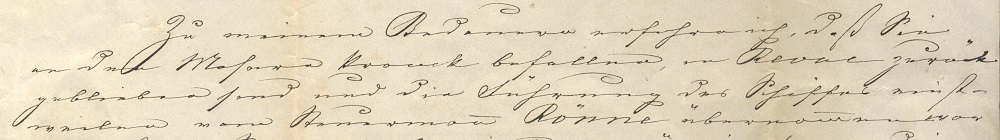 Zu meinem Bedauern erfahre ich, daß Sie
an den Masern kranck befallen, in Reval zurück
geblieben sind und die Führung des Schiffes einst-
weilen vom Steuermann Rönne übernommen war